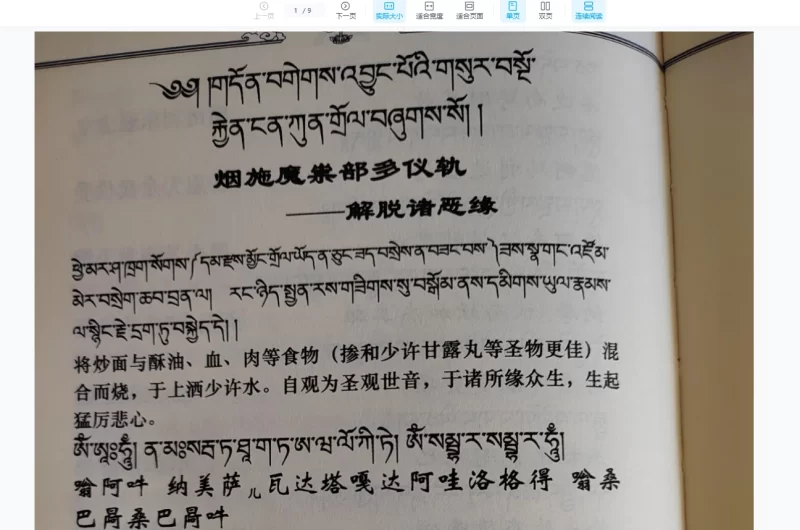 上一页 1 / 9 下一页 实际大小 适合宽度 适合页面 单页 双页 连续阅读
༄༅། །གདོན་བགེགས་འབྱུང་པོའི་གསུར་བསྔོ་
རྐྱེན་ངན་ཀུན་གྲོལ་བཞུགས་སོ། །
烟施魔祟部多仪轨
——解脱诸恶缘
ཕྱེ་མར་ཤ་ཁྲག་སོགས་(དམ་རྫས་མྱོང་གྲོལ་ཡོད་ན་ཅུང་ཟད་བསྲེས་ན་བཟང་བས་)ཟས་སྣ་གང་འཛོམ་
མེར་བསྲེག་ཆབ་བྲན་ལ། རང་ཉིད་སྤྱན་རས་གཟིགས་སུ་བསྒོམ་ནས་དམིགས་ཡུལ་རྣམས་
ལ་སྙིང་རྗེ་དྲག་ཏུ་བསྐྱེད་དེ། །
将炒面与酥油、血、肉等食物（掺和少许甘露丸等圣物更佳）混
合而烧，于上洒少许水。自观为圣观世音，于诸所缘众生，生起
猛厉悲心。
ༀ་ཨཱཿཧཱུྃ། ན་མཿསརྦ་ཏ་ཐཱ་ག་ཏ་ཨ་ཝ་ལོ་ཀི་ཏེ། ༀ་སམྦྷ་ར་སམྦྷ་ར་ཧཱུྃ།
嗡阿吽 纳美萨儿瓦达塔嘎达阿哇洛格得 嗡桑
巴局桑巴局吽